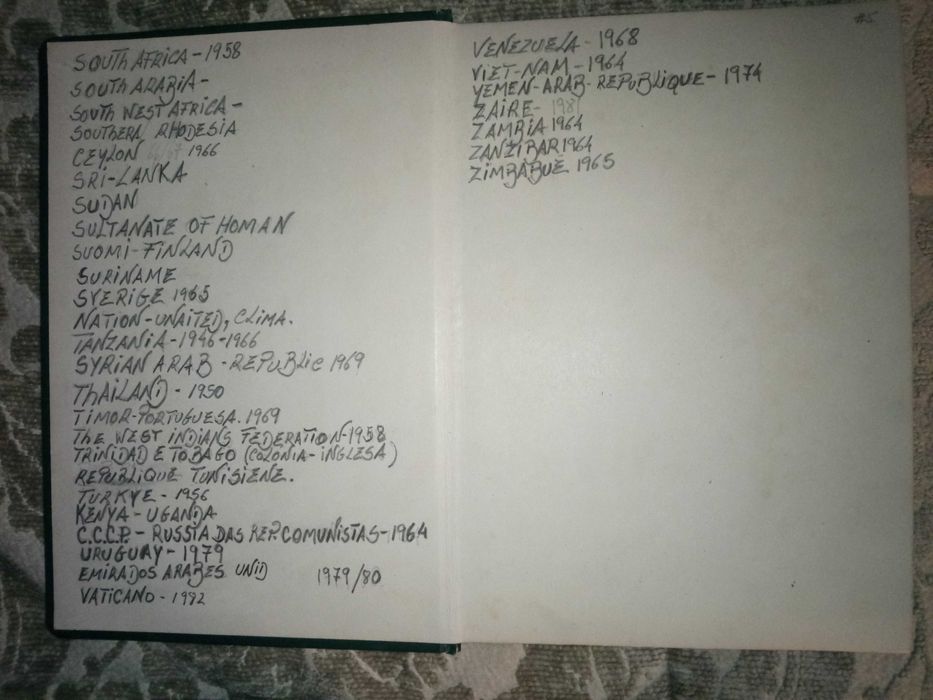 SOUTH AFRICA - 1958
SOUTH ARABIA -
SOUTH WEST AFRICA -
SOUTHERN RHODESIA
CEYLON 66/67 1966
SRI-LANKA
SUDAN
SULTANATE OF HOMAN
SUOMI-FINLAND
SURINAME
SVERIGE 1965
NATION-UNAITED, CLIMA.
TANZANIA-1946-1966
SYRIAN ARAB - REPUBLIC 1969
THAILAND - 1950
TIMOR-PORTUGUESA. 1969
THE WEST INDIANS FEDERATION-1958
TRINIDAD E TOBAGO (COLONIA-INGLESA)
REPUBLIQUE TUNISIENE.
TURKYE - 1956
KENYA - UGANDA
C.C.C.P. - RUSSIA DAS REP. COMUNISTAS-1964
URUGUAY - 1979
EMIRADOS ARABES UNID 1979/80
VATICANO - 1982
#5
VENEZUELA - 1968
VIET-NAM - 1964
YEMEN-ARAB-REPUBLIQUE - 1974
ZAIRE - 1981
ZAMBIA 1964
ZANZIBAR 1964
ZIMBABUE 1965